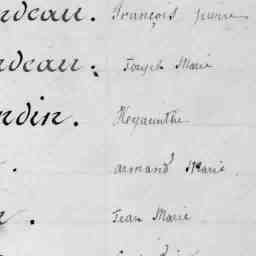 rdeau. François pierre
rdeau. Joseph Marie
rdin. Heyacinthe
armand Marie
Jean Marie